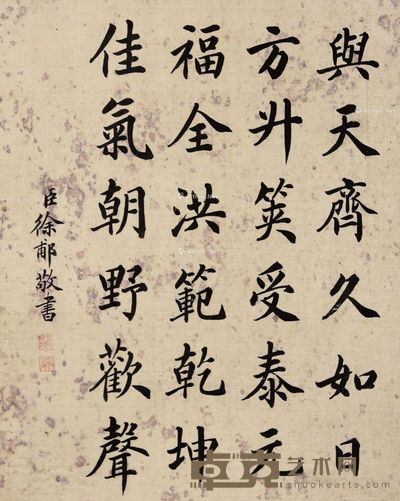 與天齊久如日
方升筴受泰元
福全洪範乾坤
佳氣朝野歡聲
臣徐郙敬書
艺术网
zhuokearts.com